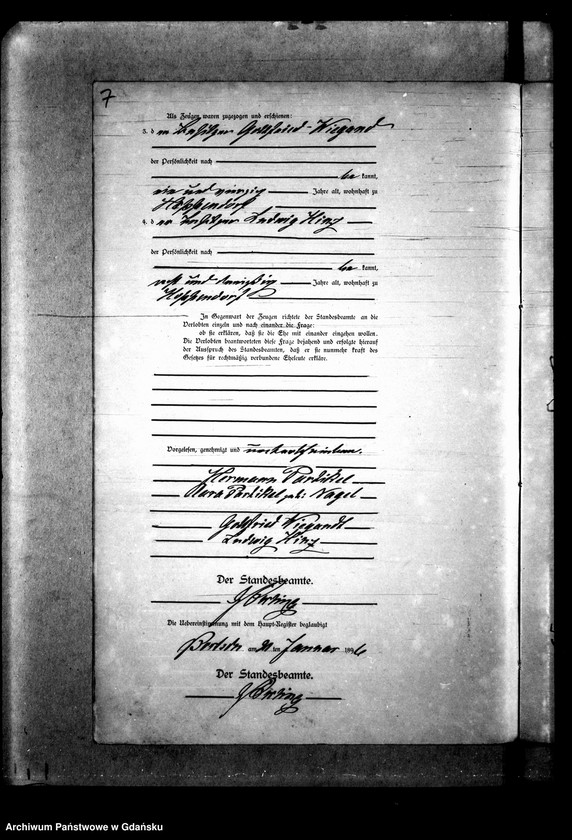 7
Als Zeugen waren zugezogen und erschienen:
3. der Besitzer Gottfried Wiegand
der Persönlichkeit nach
bekannt,
ein und vierzig Jahre alt, wohnhaft zu
4. der Besitzer Ludwig Hinz
der Persönlichkeit nach
bekannt,
acht und dreißig Jahre alt, wohnhaft zu
In Gegenwart der Zeugen richtete der Standesbeamte an die
Verlobten einzeln und nach einander die Frage:
ob sie erklären, daß sie die Ehe mit einander eingehen wollen.
Die Verlobten beantworteten diese Frage bejahend und erfolgte hierauf
der Ausspruch des Standesbeamten, daß er sie nunmehr kraft des
Gesetzes für rechtmäßig verbundene Eheleute erkläre.
Vorgelesen, genehmigt und unterschrieben.
Hermann Pardikel
Clara Pardikel geb. Nagel
Gottfried Wiegandt
Ludwig Hinz
Der Standesbeamte.
Die Uebereinstimmung mit dem Haupt-Register beglaubigt
am 21 ten Januar 1896
Der Standesbeamte.
Archiwum Państwowe w Gdańsku